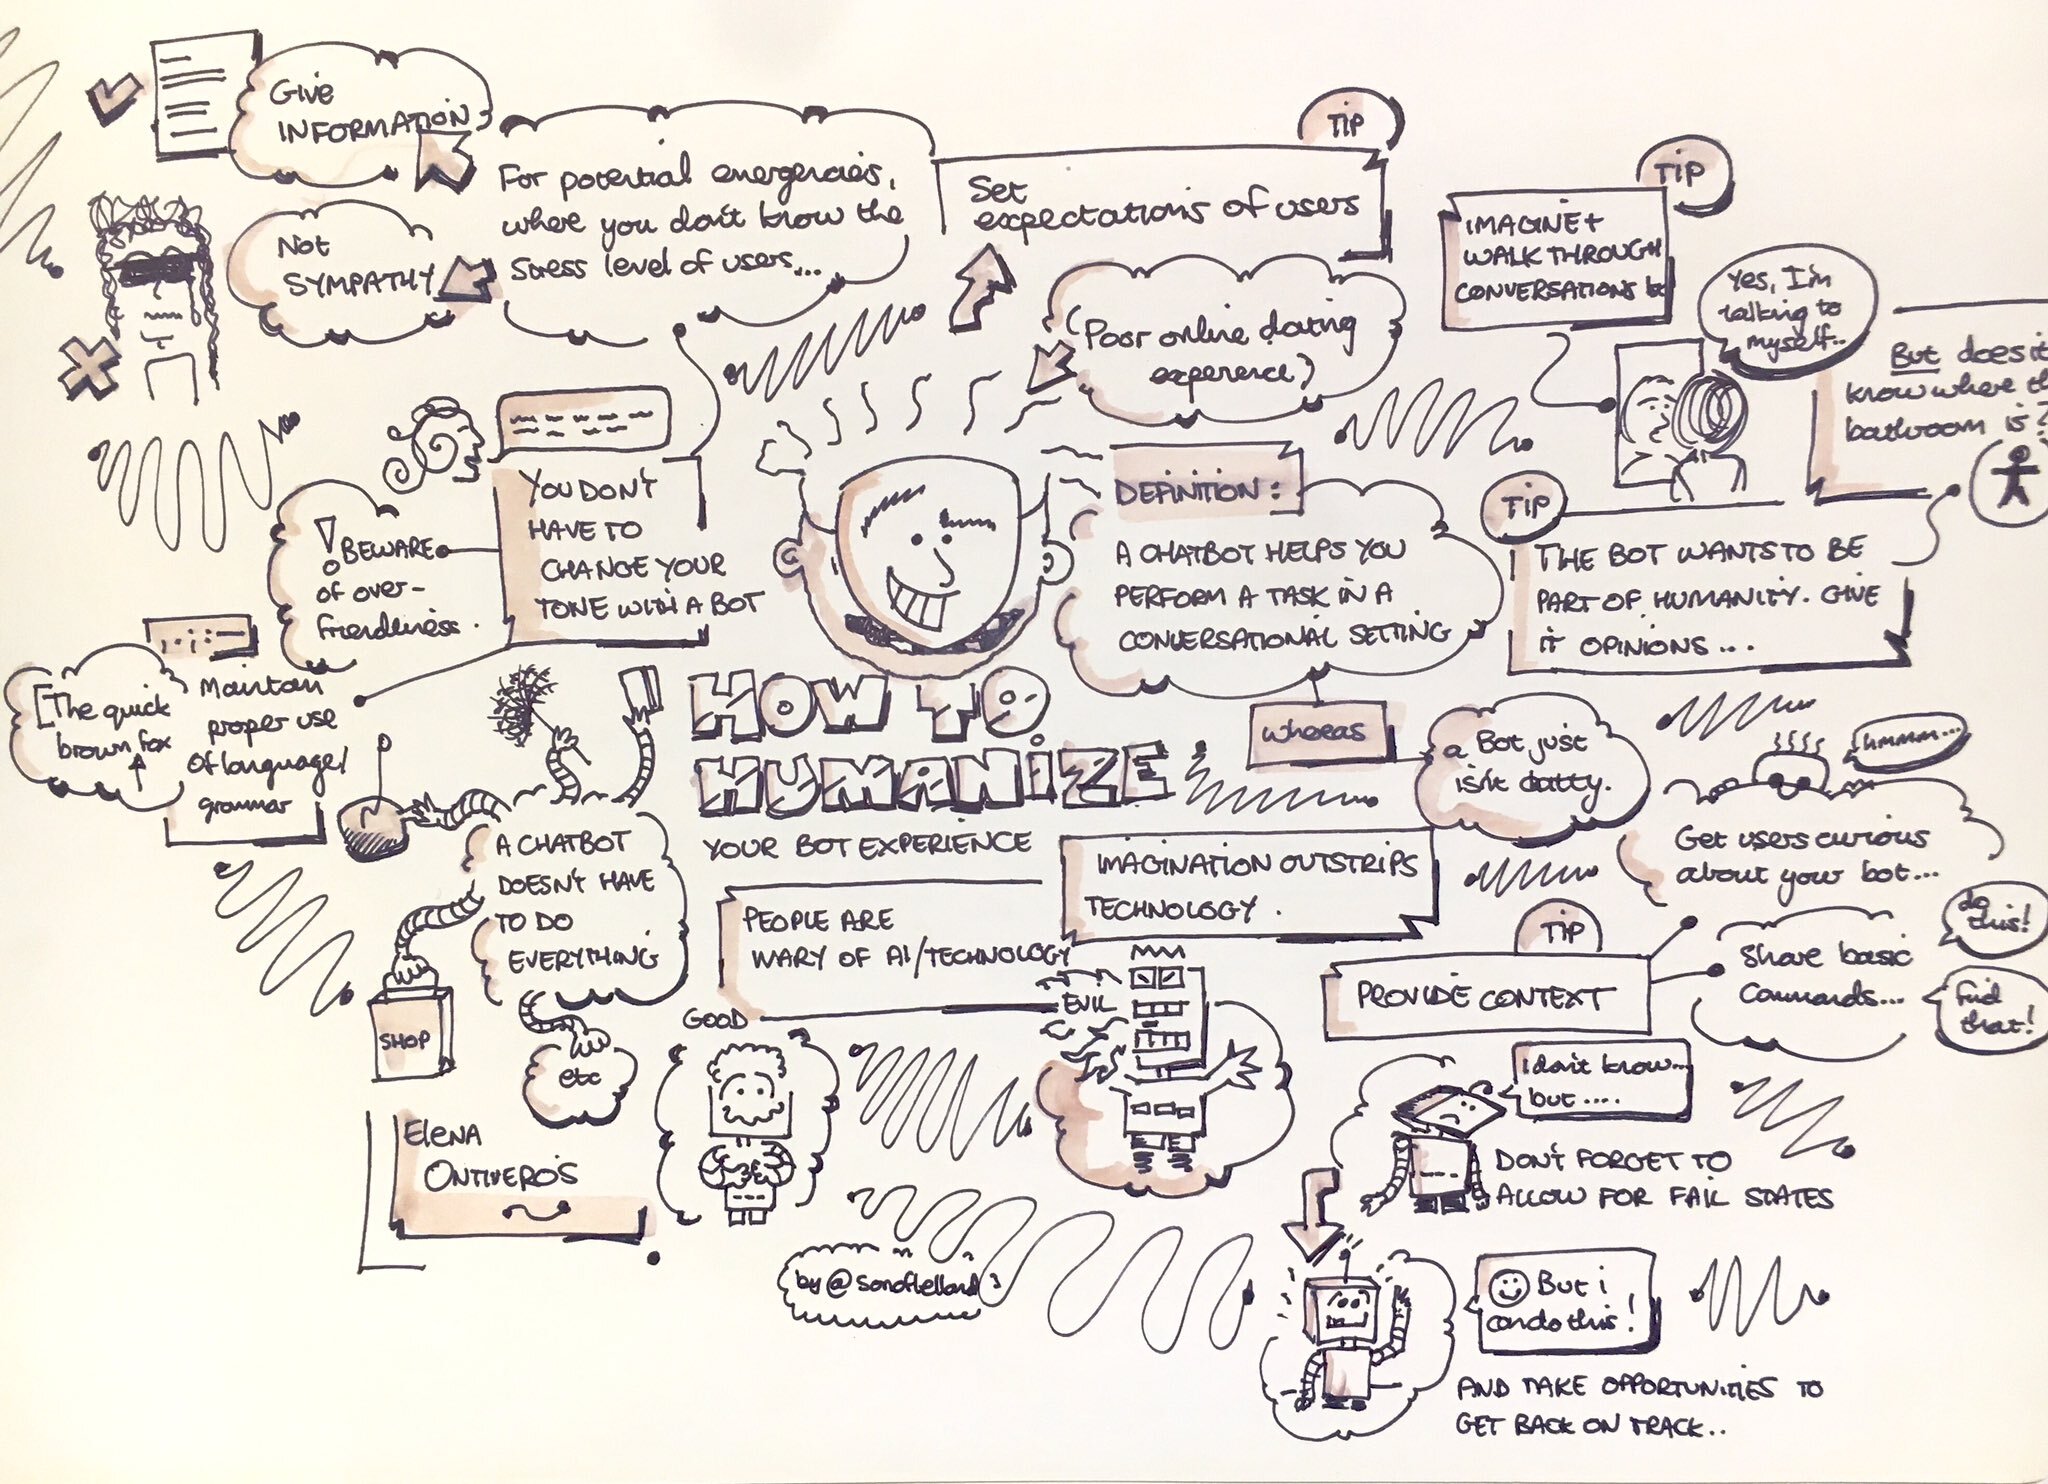 Give
INFORMATION
Not
SYMPATHY
For potential emergencies,
where you don't know the
stress level of users...
TIP
Set
expectations of users
(Poor online dating
experience?)
TIP
IMAGINE +
WALK THROUGH
CONVERSATIONS
Yes, I'm
talking to
myself..
BUT does it
know where
bathroom is?
YOU DON'T
HAVE TO
CHANGE YOUR
TONE WITH A BOT
! BEWARE
of over-
friendliness.
Maintain
proper use
of language/
grammar
[The quick
brown fox
DEFINITION:
A CHATBOT HELPS YOU
PERFORM A TASK IN A
CONVERSATIONAL SETTING
whereas
a Bot just
isn't chatty.
TIP
THE BOT WANTS TO BE
PART OF HUMANITY. GIVE
IT OPINIONS...
HOW TO
HUMANIZE
YOUR BOT EXPERIENCE
A CHATBOT
DOESN'T HAVE
TO DO
EVERYTHING
SHOP
etc
PEOPLE ARE
WARY OF AI/TECHNOLOGY
GOOD
EVIL
IMAGINATION OUTSTRIPS
TECHNOLOGY.
hmmm...
Get users curious
about your bot...
TIP
PROVIDE CONTEXT
Share basic
Commands...
do
this!
Find
that!
I don't know...
but....
DON'T FORGET TO
ALLOW FOR FAIL STATES
But i
can do this!
AND TAKE OPPORTUNITIES TO
GET BACK ON TRACK..
ELENA
ONTIVEROS
by @sonofbellard